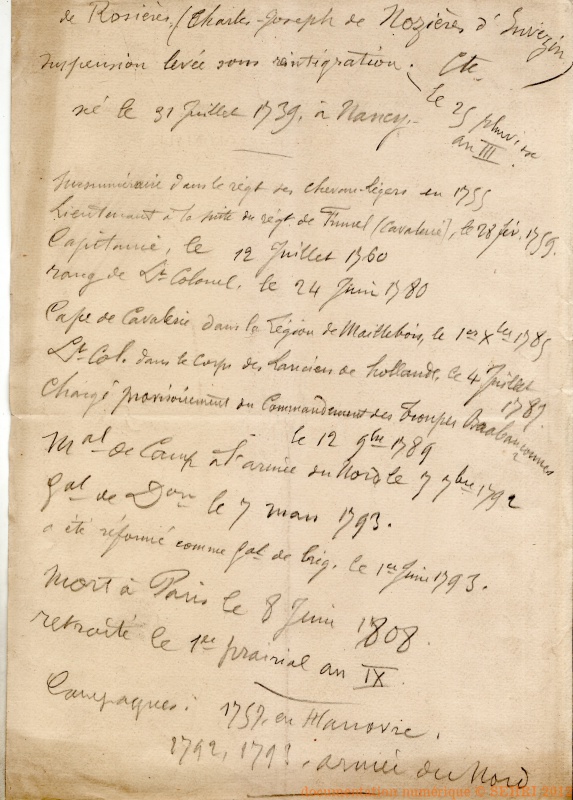 de Rosières, (Charles-Joseph de Nozières d'Envezin) Cte
suspension levée sans réintégration. le 25 pluviose an III.
né le 31 Juillet 1739, à Nancy.
Surnuméraire dans le régt des chevau-légers en 1755
Lieutenant à la suite du régt de Fumel (Cavalerie), le 28 fév. 1759.
Capitaine, le 12 Juillet 1760
rang de Lt Colonel, le 24 Juin 1780
Cape de Cavalerie dans la Légion de Maillebois, le 1er Xbre 1785
Lt Col. dans le Corps des Lanciers de hollande, le 4 Juillet 1787.
Chargé provisoirement du Commandement des Troupes Brabançonnes
le 12 9bre 1789
Mal de Camp à l'armée du Nord le 7 7bre 1792
gal de Don le 7 mars 1793.
a été réformé comme gal de brig. le 1er Juin 1793.
Mort à Paris le 8 Juin 1808.
retraité le 1er prairial an IX.
Campagnes: 1757, en Hanovre.
1792, 1793. armée du Nord
documentation numérique © SEHRI 201